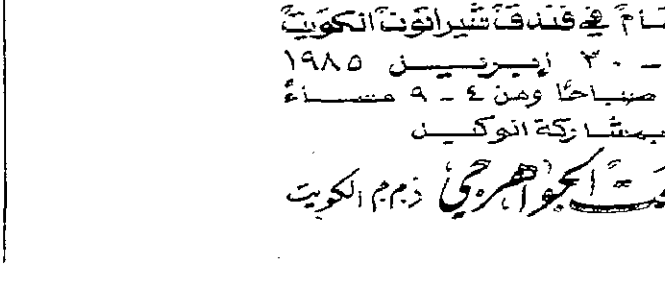 في فندق شيراتون الكويت
- ٣٠ إبريل ١٩٨٥
صباحًا ومن ٤ - ٩ مساءً
بمشاركة الوكيل
الجواهرجي ذ.م.م الكويت